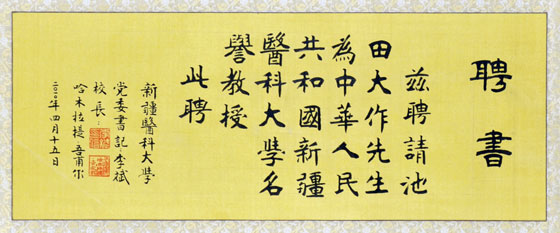 聘書
茲聘請池
田大作先生
為中華人民
共和國新疆
醫科大學名
譽教授
此聘
新疆醫科大學
党委書記:李斌
校長:
哈木拉提 吾甫尔
年四月十五日